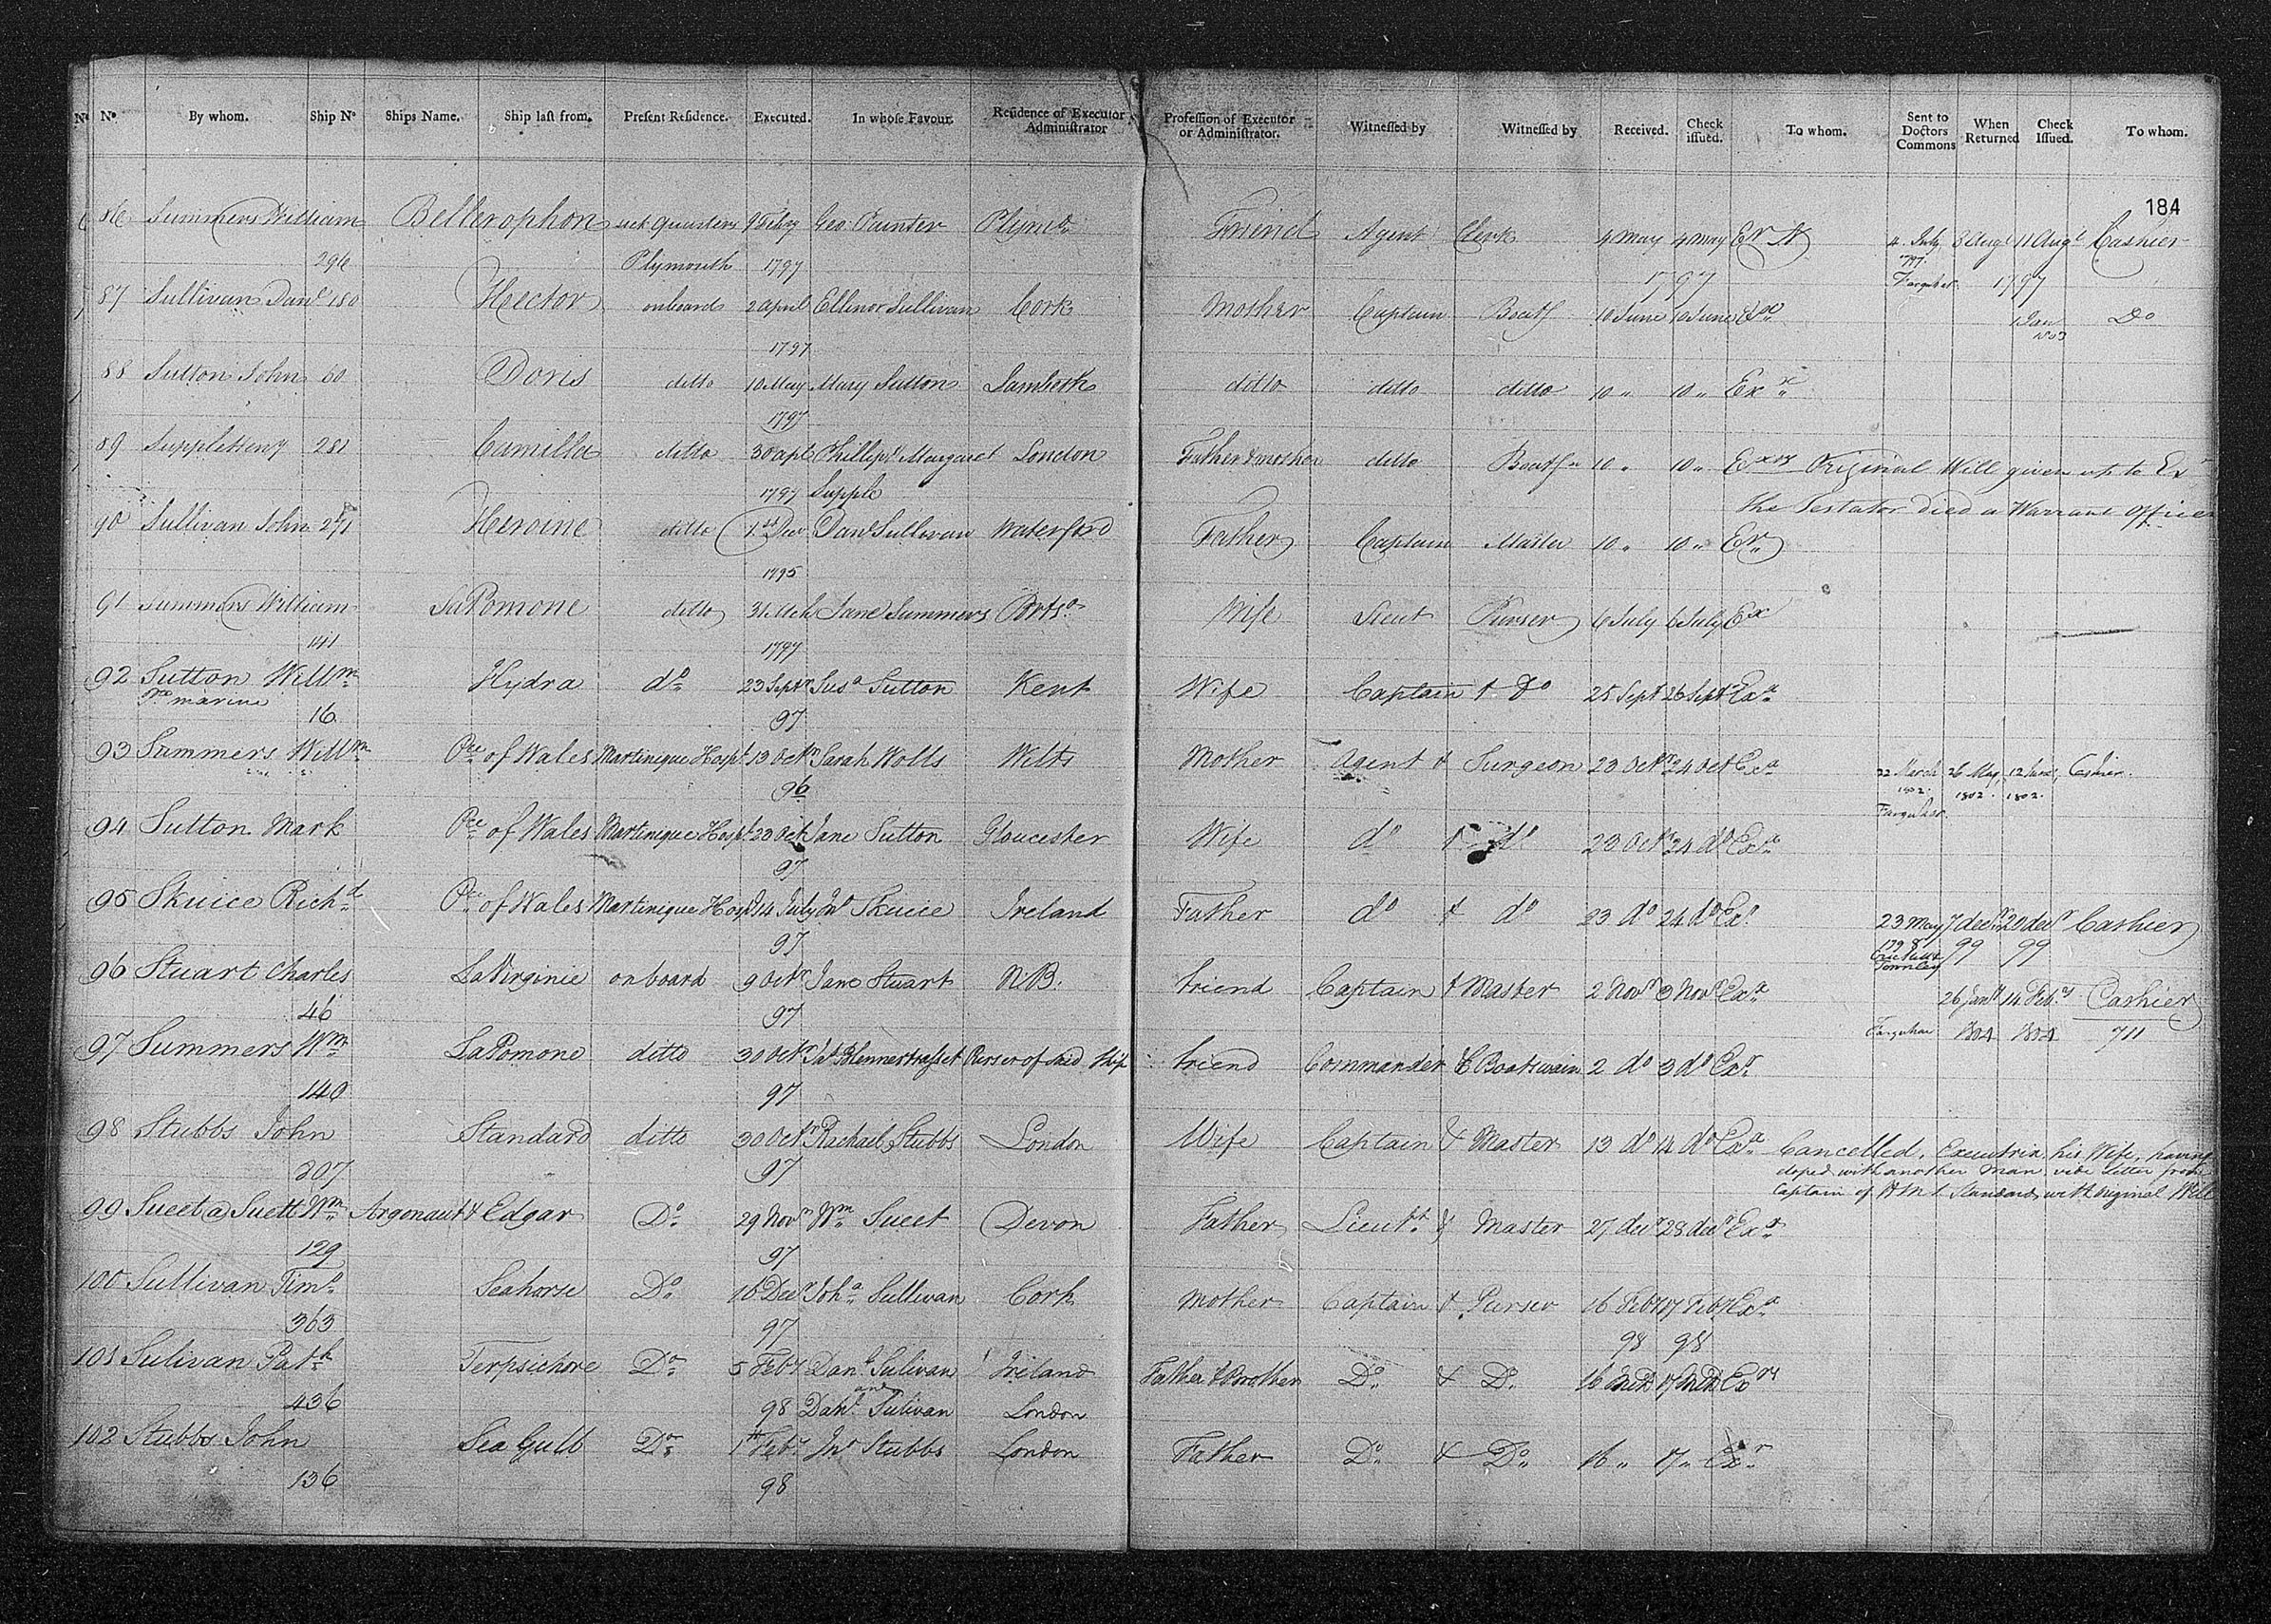 No. By whom. Ship No Ships Name. Ship last from. Present Residence. Executed. In whose Favour. Residence of Executor Administrator Profession of Executor or Administrator. Witnessed by Witnessed by Received. Check issued. To whom. Sent to Doctors Commons When Returned Check Issued. To whom.
184
86 Summers William Bellerophon sick quarters 9 Feby Geo Painter Plymo Friend Agent Clerk 4 May 4 May Exr 4 July 3 Augt 11 Augt Cashier
296 Plymouth 1797 1797 1797 Farquhar 1797
87 Sullivan Danl 180 Hector onboard 2 april Ellinor Sullivan Cork Mother Captain Boats 10 June 10 June Exx 1 Jan 1803 Do
1797
88 Sutton John 60 Doris ditto 10 May Mary Sutton Lambeth ditto ditto ditto 10 " 10 " Exx
1797
89 Supple Heny 281 Camilla ditto 30 apl Phillip & Margaret London Father & mother ditto Boatsn 10 " 10 " Exrs Original Will given up to Exr
1797 Supple the Testator died a Warrant Officer
90 Sullivan John 271 Heroine ditto 1st Danl Sullivan Waterford Father Captain Master 10 " 10 " Exr
1795
91 Summers William La Pomone ditto 31 Mch Jane Summers Portso Wife Lieut Purser 6 July 6 July Ex
141 1797
92 Sutton Willm Hydra do 23 Septr Susa Sutton Kent Wife Captain & Do 25 Sept 26 Sept Exx
marine 16 97
93 Summers Willm Pce of Wales Martinique Hospl 13 Octr Sarah Wolls Wilts Mother Agent & Surgeon 23 Octr 24 Oct Exx 22 March 26 May 12 June Cashier
96 1802. 1802. 1802. Farquhar
94 Sutton Mark Pce of Wales Martinique Hospl 20 Oct Jane Sutton Gloucester Wife do & do 23 Octr 24 do Exx
97
95 Skuice Richd Pce of Wales Martinique Hospl 14 July Jno Skuice Ireland Father do & do 23 do 24 do Exr 23 May 7 decr 20 decr Cashier
97 1798 99 99 Townley
96 Stuart Charles La Virginie onboard 9 Octr Jane Stuart N.B. friend Captain & Master 2 Novr 3 Novr Exx 26 Jany 14 Feby Cashier
46 97 Farquhar 1804 1804 711
97 Summers Wm La Pomone ditto 30 Octr Jas Blennerhasset Purser of said Ship friend Commander & Boatswain 2 do 3 do Exr
140 97
98 Stubbs John Standard ditto 30 Octr Rachael Stubbs London Wife Captain & Master 13 do 14 do Exx Cancelled, Executrix, his Wife, having
207 97 eloped with another man, vide Letter from
Captain of HMS Standard, with original Will
99 Sueet @ Suett Wm Argonaut & Edgar Do 29 Novr Wm Sueet Devon Father Lieutt & Master 27 decr 28 decr Exr
129 97
100 Sullivan Timo Seahorse Do 16 Decr Joha Sullivan Cork Mother Captain & Purser 16 Feby 17 Feby Exx
363 97 98 98
101 Sulivan Patk Terpsichore Do 5 Feby Danl Sulivan Ireland Father & Brother Do & Do 16 17 Exrs
436 98 and Danl Sulivan London
102 Stubbs John Sea Gull Do 1st Feby Jno Stubbs London Father Do & Do 16 " 17 " Exr
136 98